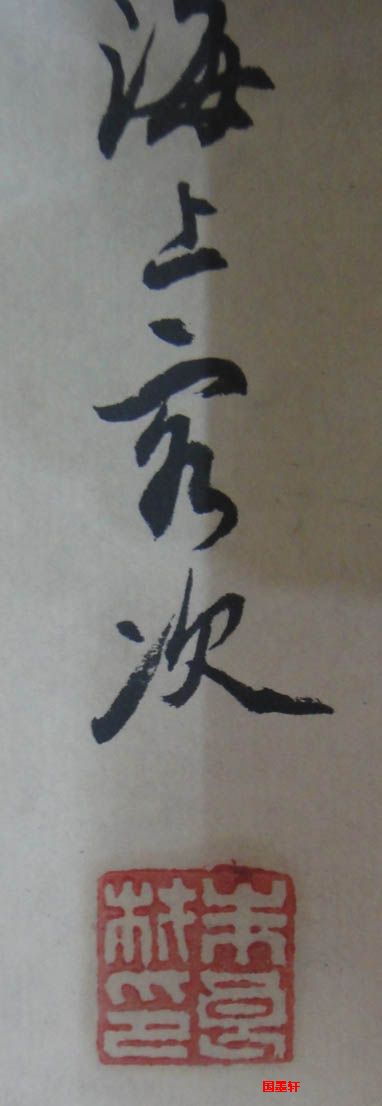 海上客次
国墨轩